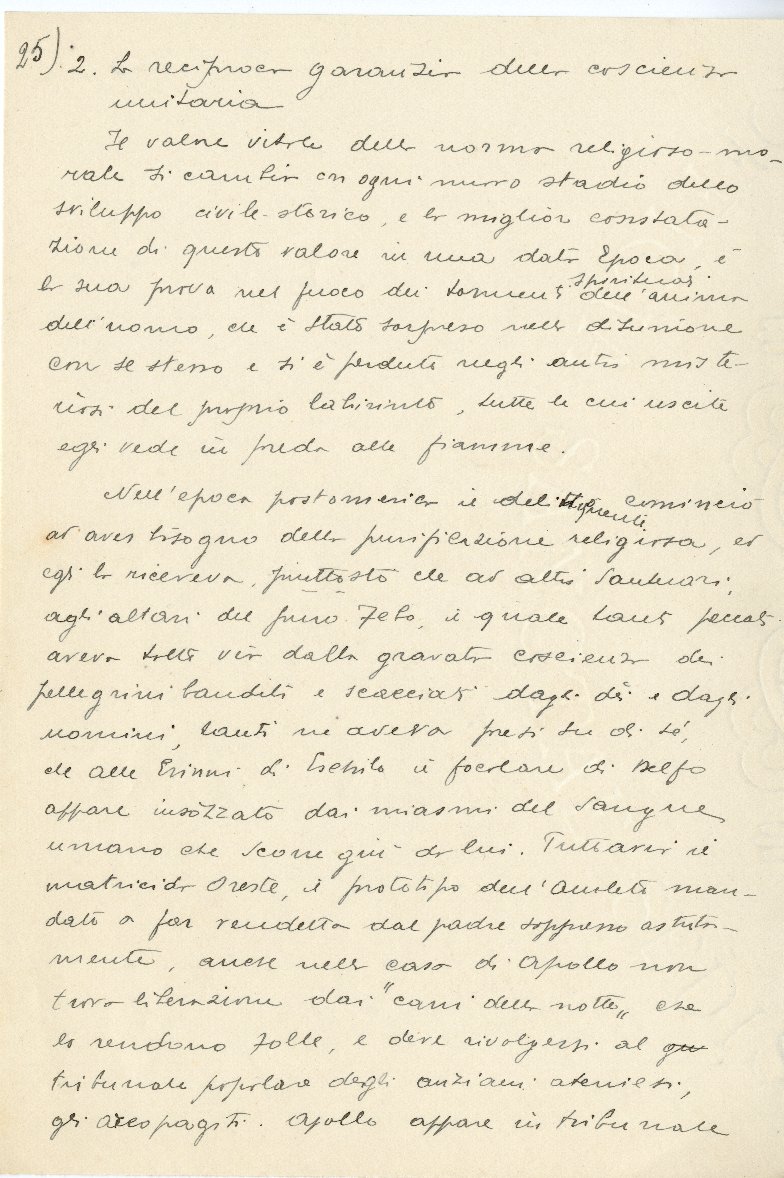 25). 2. La reciproca garanzia della coscienza
unitaria
Il valore vitale della norma religioso-mo-
rale si cambia con ogni nuovo stadio dello
sviluppo civile-storico, e la miglior constata-
zione di questo valore in una data Epoca, è
la sua prova nel fuoco dei tormenti spirituali dell'anima
dell'uomo, che è stato sorpreso nella disunione
con se stesso e si è perduto negli antri miste-
riosi del proprio labirinto, tutte le cui uscite
egli vede in preda alle fiamme.
Nell'epoca postomerica il delinquente cominciò
ad aver bisogno della purificazione religiosa, ed
egli la riceveva, piuttosto che ad altri Santuari,
agli altari del puro Febo, il quale tanti peccati
aveva tolto via dalla gravata coscienza dei
pellegrini banditi e scacciati dagli dèi e dagli
uomini, tanti ne aveva presi su di sé,
che alle Erinni di Eschilo il focolare di Delfo
appare insozzato dai miasmi del Sangue
umano che scorre giù da lui. Tuttavia il
matricida Oreste, il prototipo dell'Amleto man-
dato a far vendetta dal padre soppresso astuta-
mente, anche nella casa di Apollo non
trova liberazione dai "cani della notte„ che
lo rendono folle, e deve rivolgersi al
tribunale popolare degli anziani ateniesi,
gli areopagiti. Apollo appare in tribunale